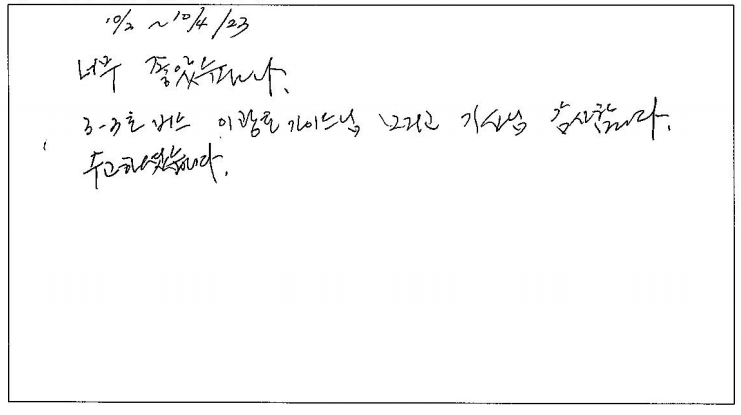 10/2 ~ 10/4/23
너무 좋았습니다.
3-3호 버스 이광호 가이드님 그리고 기사님 감사합니다.
수고하셨습니다.